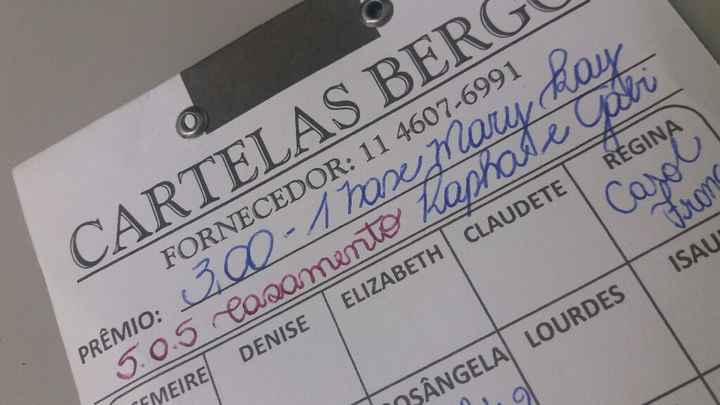 CARTELAS BERGO
FORNECEDOR: 11 4607-6991
PRÊMIO: 3,00 - 1 base Mary Kay
S.O.S casamento Raphael e Gabi
EMEIRE DENISE ELIZABETH CLAUDETE REGINA
Carol
Franc
OSÂNGELA LOURDES ISAU